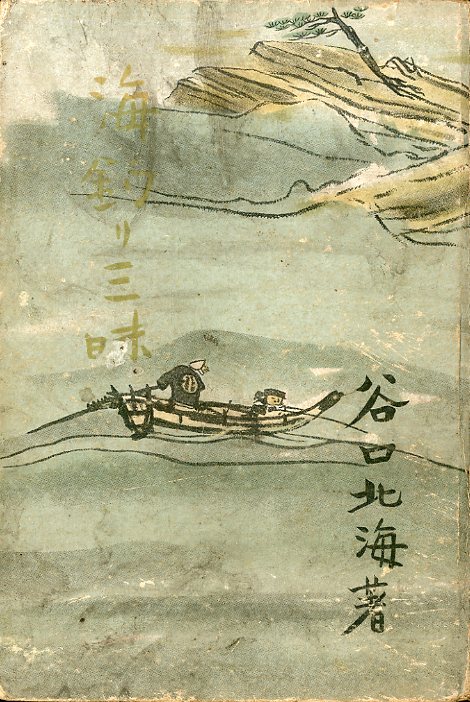 海釣り三昧
谷口北海著